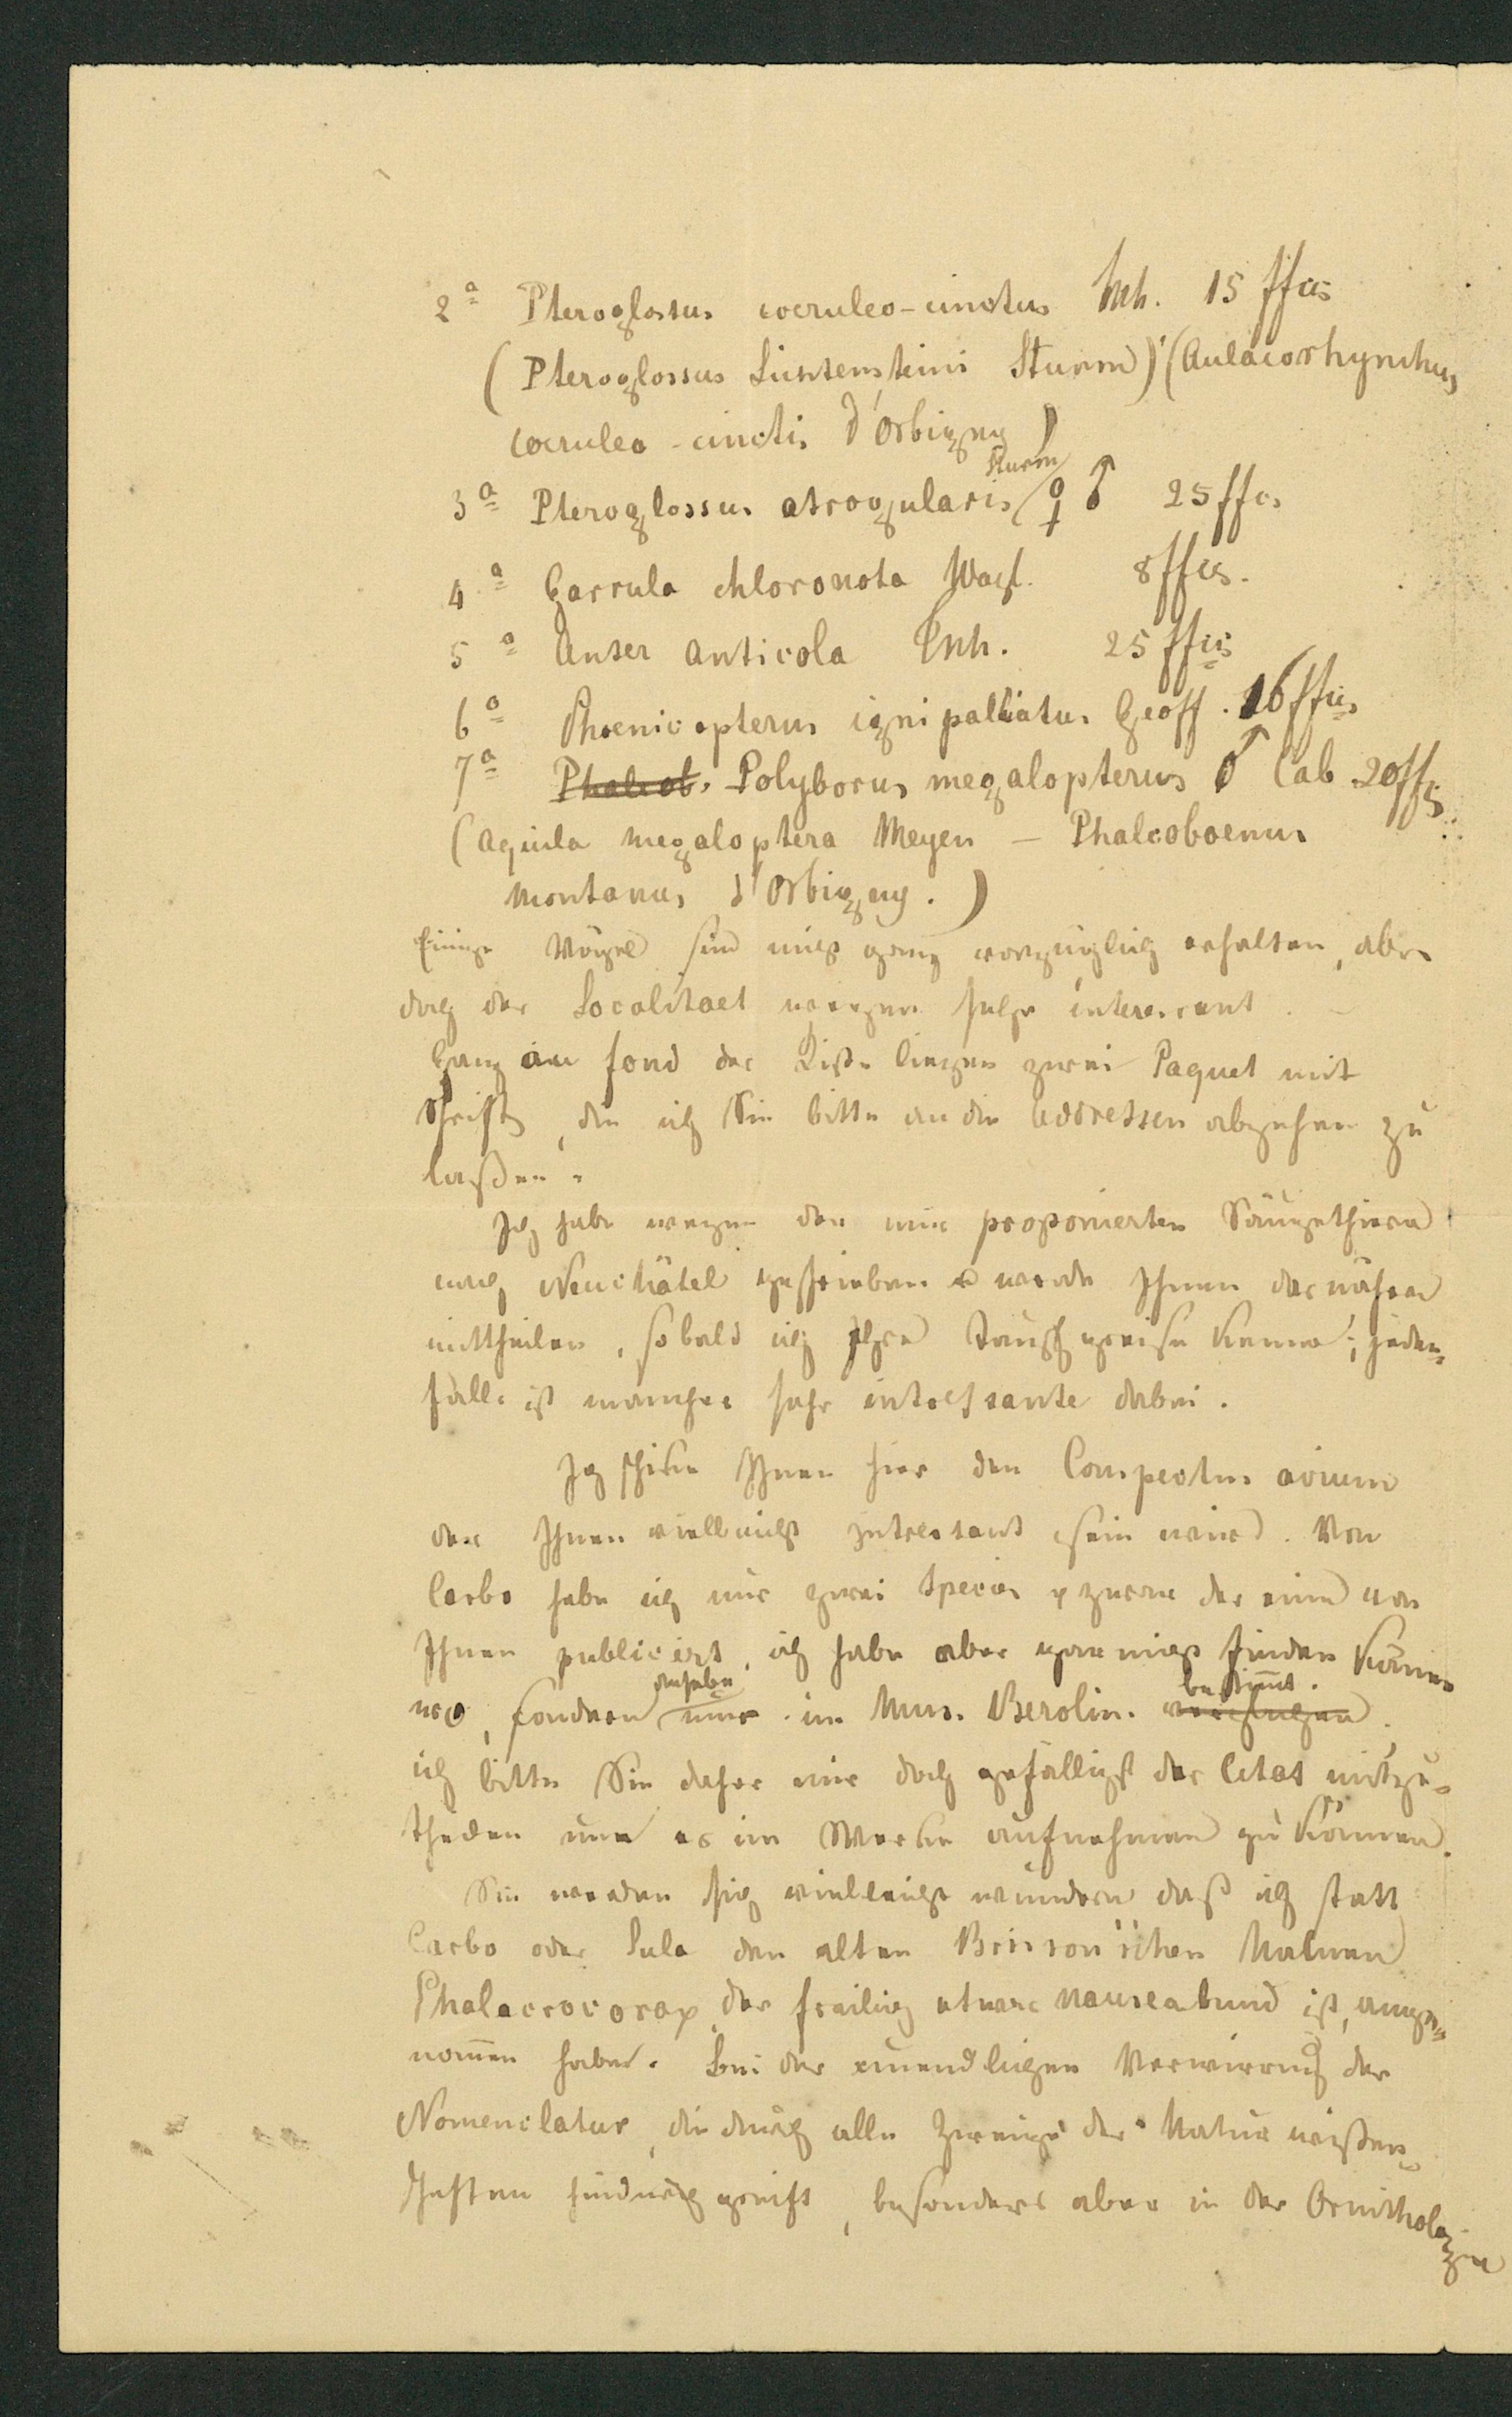 2a Pteroglossus coeruleo-cinctus Mh. 15 ffcs
(Pteroglossus Lichtensteini Sturm) (Aulacorhynchus
coeruleo-cinctis d'Orbigny)
3a Pteroglossus atrogularis Sturm ♀ ♂ 25 ffcs
4a Garrula chloronota Wagl. 8 ffcs.
5a Anser anticola Tsch. 25 ffcs
6a Phoenicopterus ignipalliatus Geoff. 16 ffcs
7a Phalcob. Polyborus megalopterus ♂ Cab 20 ffcs
(Aquila megaloptera Meyen – Phalcoboenus
montanus d'Orbigny.)
Einige Vögel sind nicht ganz vorzüglich erhalten, aber
doch der Localitaet wegen sehr interessant.
Ganz au fond der Kiste liegen zwei Paquet mit
Schrift, die ich Sie bitte an die Addressen abgehen zu
laßen.
Ich habe wegen den mir proponierten Säugethieren
nach Neuchâtel geschrieben & werde Ihnen das nähere
mittheilen, sobald ich Ihre Tauschpreise kenne; jeden-
falls ist manches sehr interessante dabei.
Ich schicke Ihnen hier den Conspectus avium
der Ihnen vielleicht interessant sein wird. Von
Carbo habe ich nur zwei Species, zwar die eine von
Ihnen publicirt, ich habe aber gar nicht finden können
wo, sondern dieselbe nur im Mus. Berolin. bestimmt.
ich bitte Sie daher mir doch gefälligst das Citat mitzu-
theilen um es im Werke aufnehmen zu können.
Sie werden sich vielleicht wundern daß ich statt
Carbo oder Sula den alten Brisson'schen Namen
Phalacrocorax, der freilich etwas nauseabund ist, ange-
nommen habe. Bei der unendlichen Verwirrung der
Nomenclatur, die durch alle Zweige der Naturwißen-
schaften hindurch greift, besonders aber in der Ornithologie